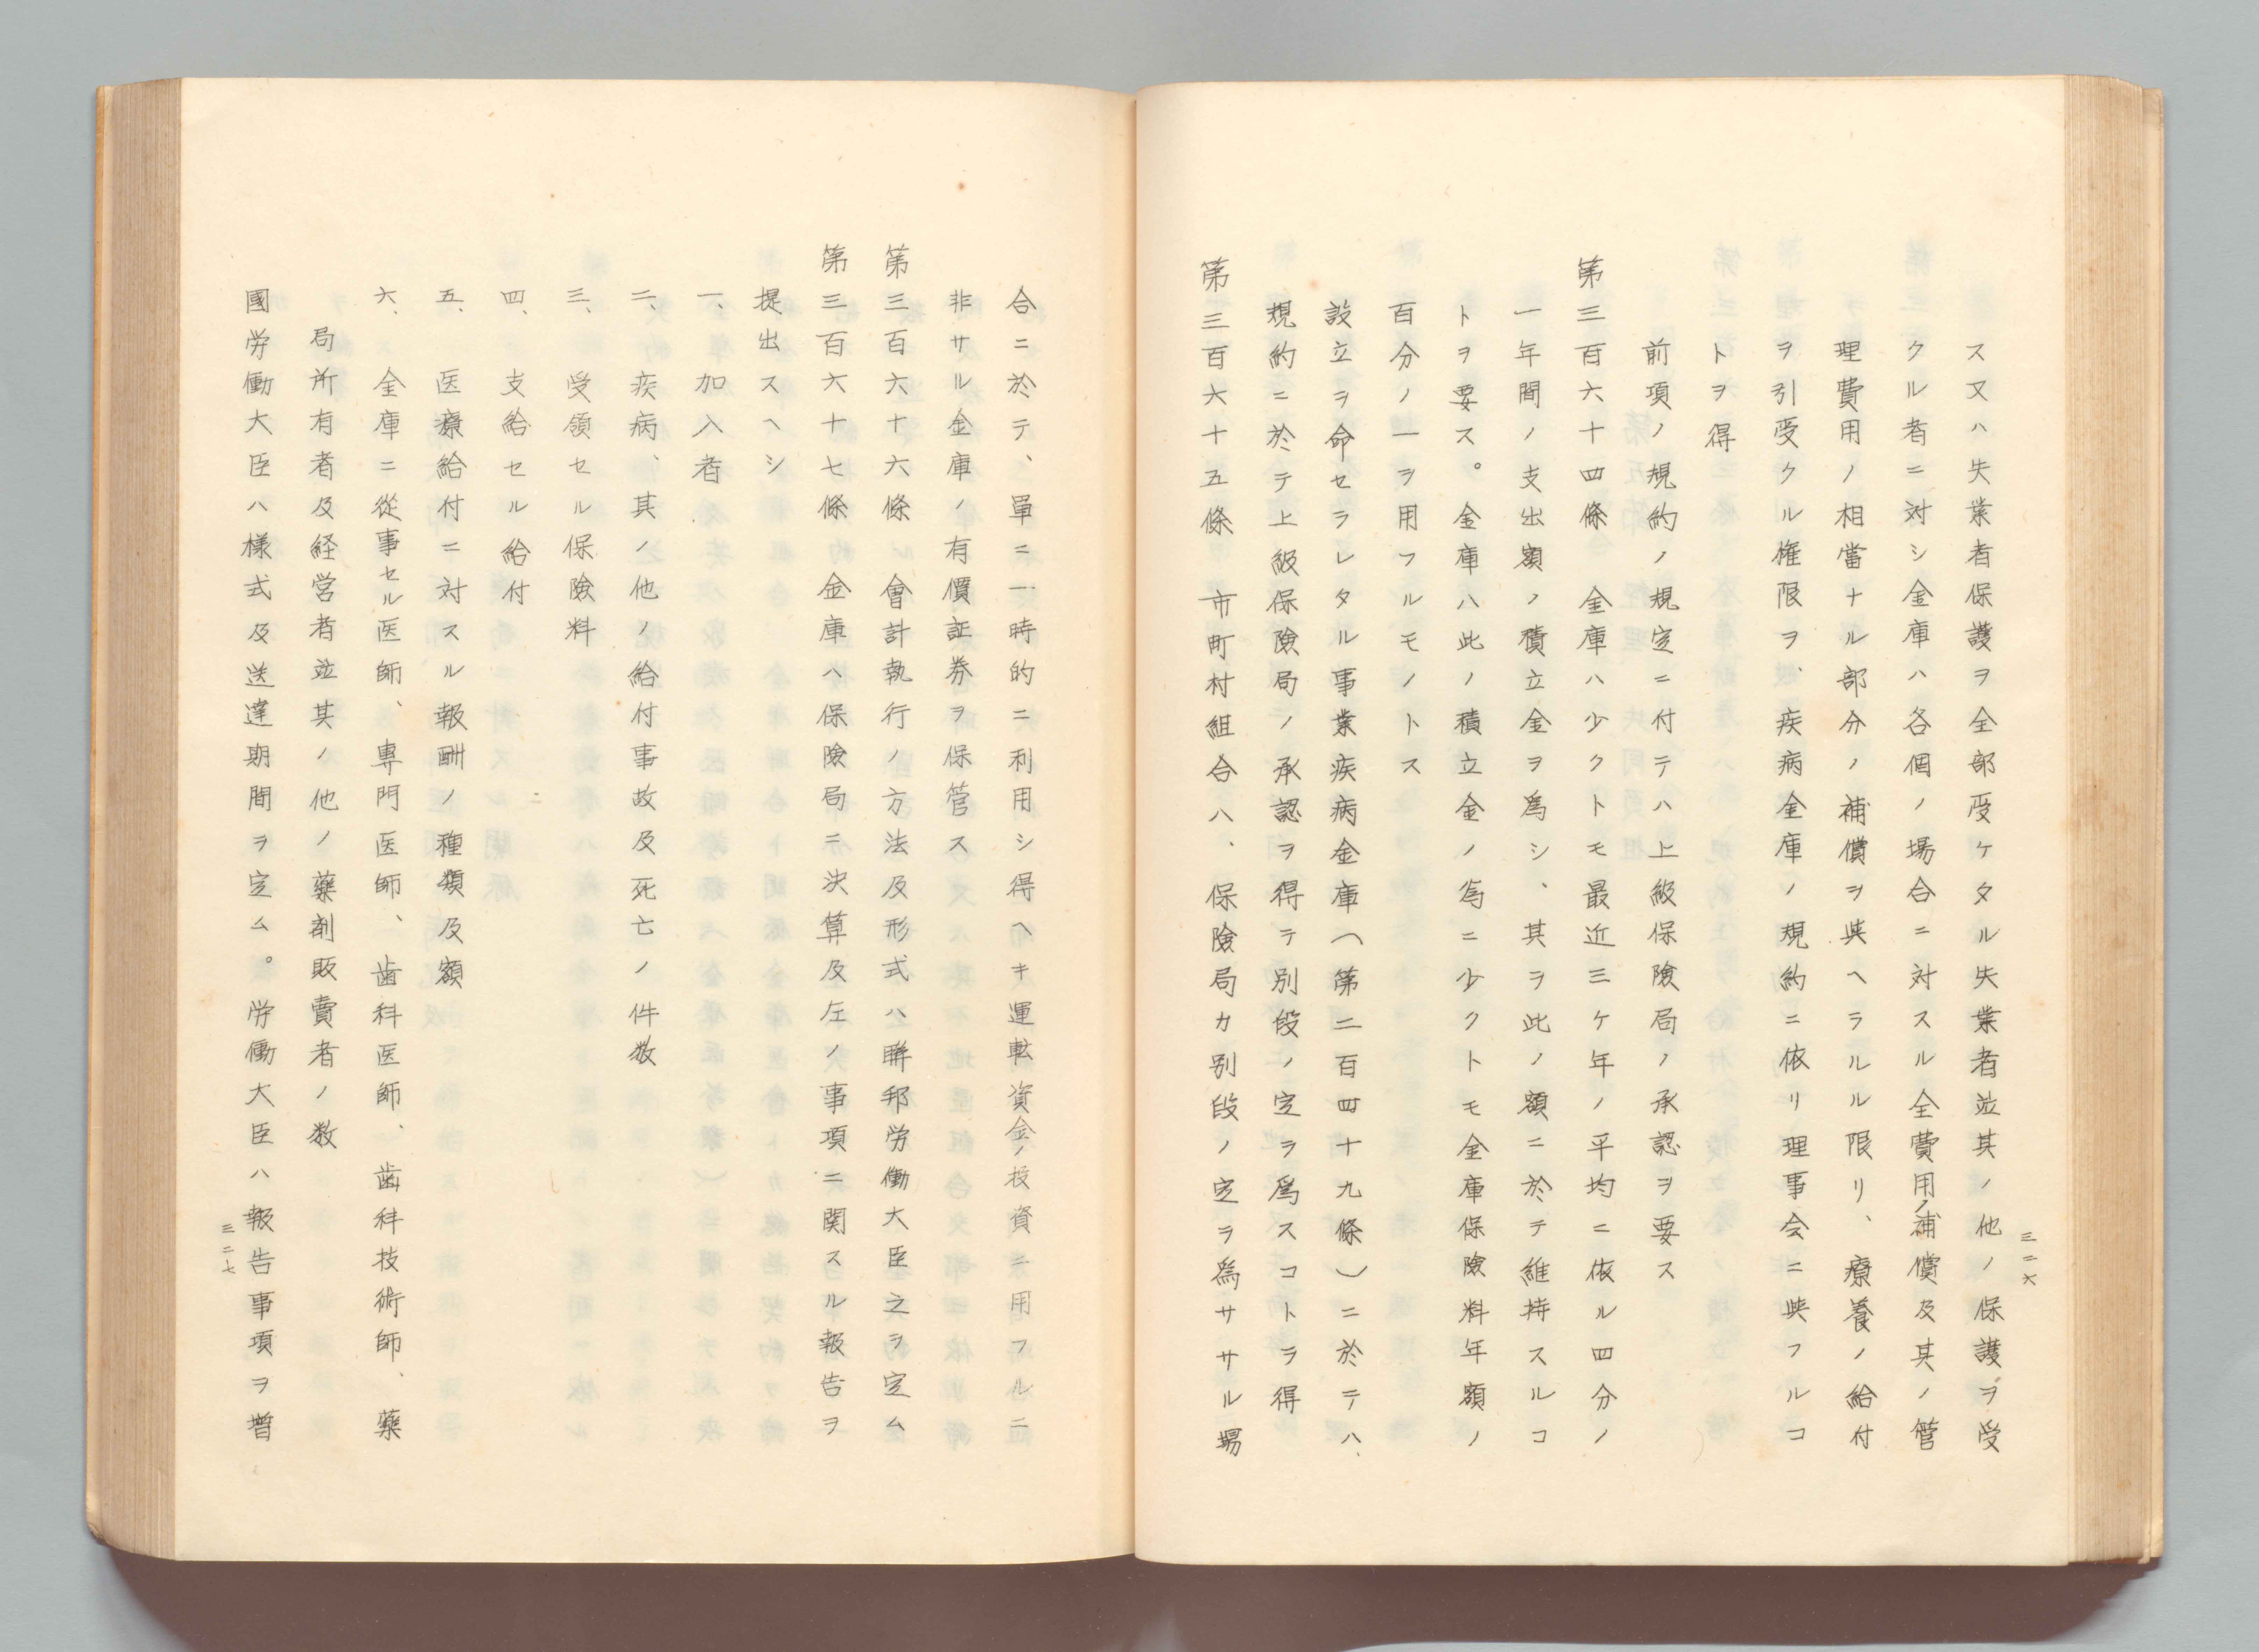 三二六
ス又ハ失業者保護ヲ全部受ケタル失業者並其ノ他ノ保護ヲ受
クル者ニ対シ金庫ハ各個ノ場合ニ対スル全費用ノ補償及其ノ管
理費用ノ相當ナル部分ノ補償ヲ与ヘラルル限リ、療養ノ給付
ヲ引受クル権限ヲ、疾病金庫ノ規約ニ依リ理事会ニ与フルコ
トヲ得
前項ノ規約ノ規定ニ付テハ上級保険局ノ承認ヲ要ス
第三百六十四條 金庫ハ少クトモ最近三ケ年ノ平均ニ依ル四分ノ
一年間ノ支出額ノ積立金ヲ為シ、其ヲ此ノ額ニ於テ維持スルコ
トヲ要ス。金庫ハ此ノ積立金ノ為ニ少クトモ金庫保険料年額ノ
百分ノ一ヲ用フルモノトス
設立ヲ命セラレタル事業疾病金庫(第二百四十九條)ニ於テハ、
規約ニ於テ上級保険局ノ承認ヲ得テ別段ノ定ヲ為スコトヲ得
第三百六十五條 市町村組合ハ、保険局カ別段ノ定ヲ為ササル場
合ニ於テ、単ニ一時的ニ利用シ得ヘキ運転資金ノ投資ニ用フルニ
非サル金庫ノ有價証券ヲ保管ス
第三百六十六條 會計執行ノ方法及形式ハ聯邦労働大臣之ヲ定ム
第三百六十七條 金庫ハ保険局ニ決算及左ノ事項ニ関スル報告ヲ
提出スヘシ
一、加入者
二、疾病、其ノ他ノ給付事故及死亡ノ件数
三、受領セル保険料
四、支給セル給付
五、医療給付ニ対スル報酬ノ種類及額
六、金庫ニ從事セル医師、専門医師、歯科医師、歯科技術師、藥
局所有者及経営者並其ノ他ノ藥剤販賣者ノ数
國労働大臣ハ様式及送達期間ヲ定ム。労働大臣ハ報告事項ヲ増
三二七